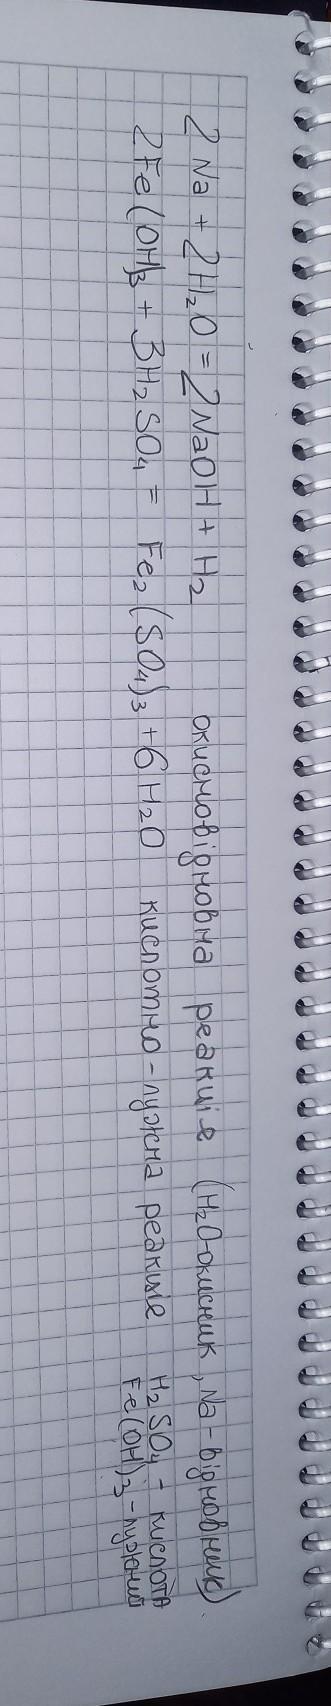 2 Na + 2H₂O = 2NaOH + H₂ окисновідновна реакція (H₂O-окисник, Na-відновник)
2Fe(OH)₃ + 3H₂SO₄ = Fe₂(SO₄)₃ + 6H₂O кислотно-лужна реакція H₂SO₄ - кислота
Fe(OH)₃ - лужний